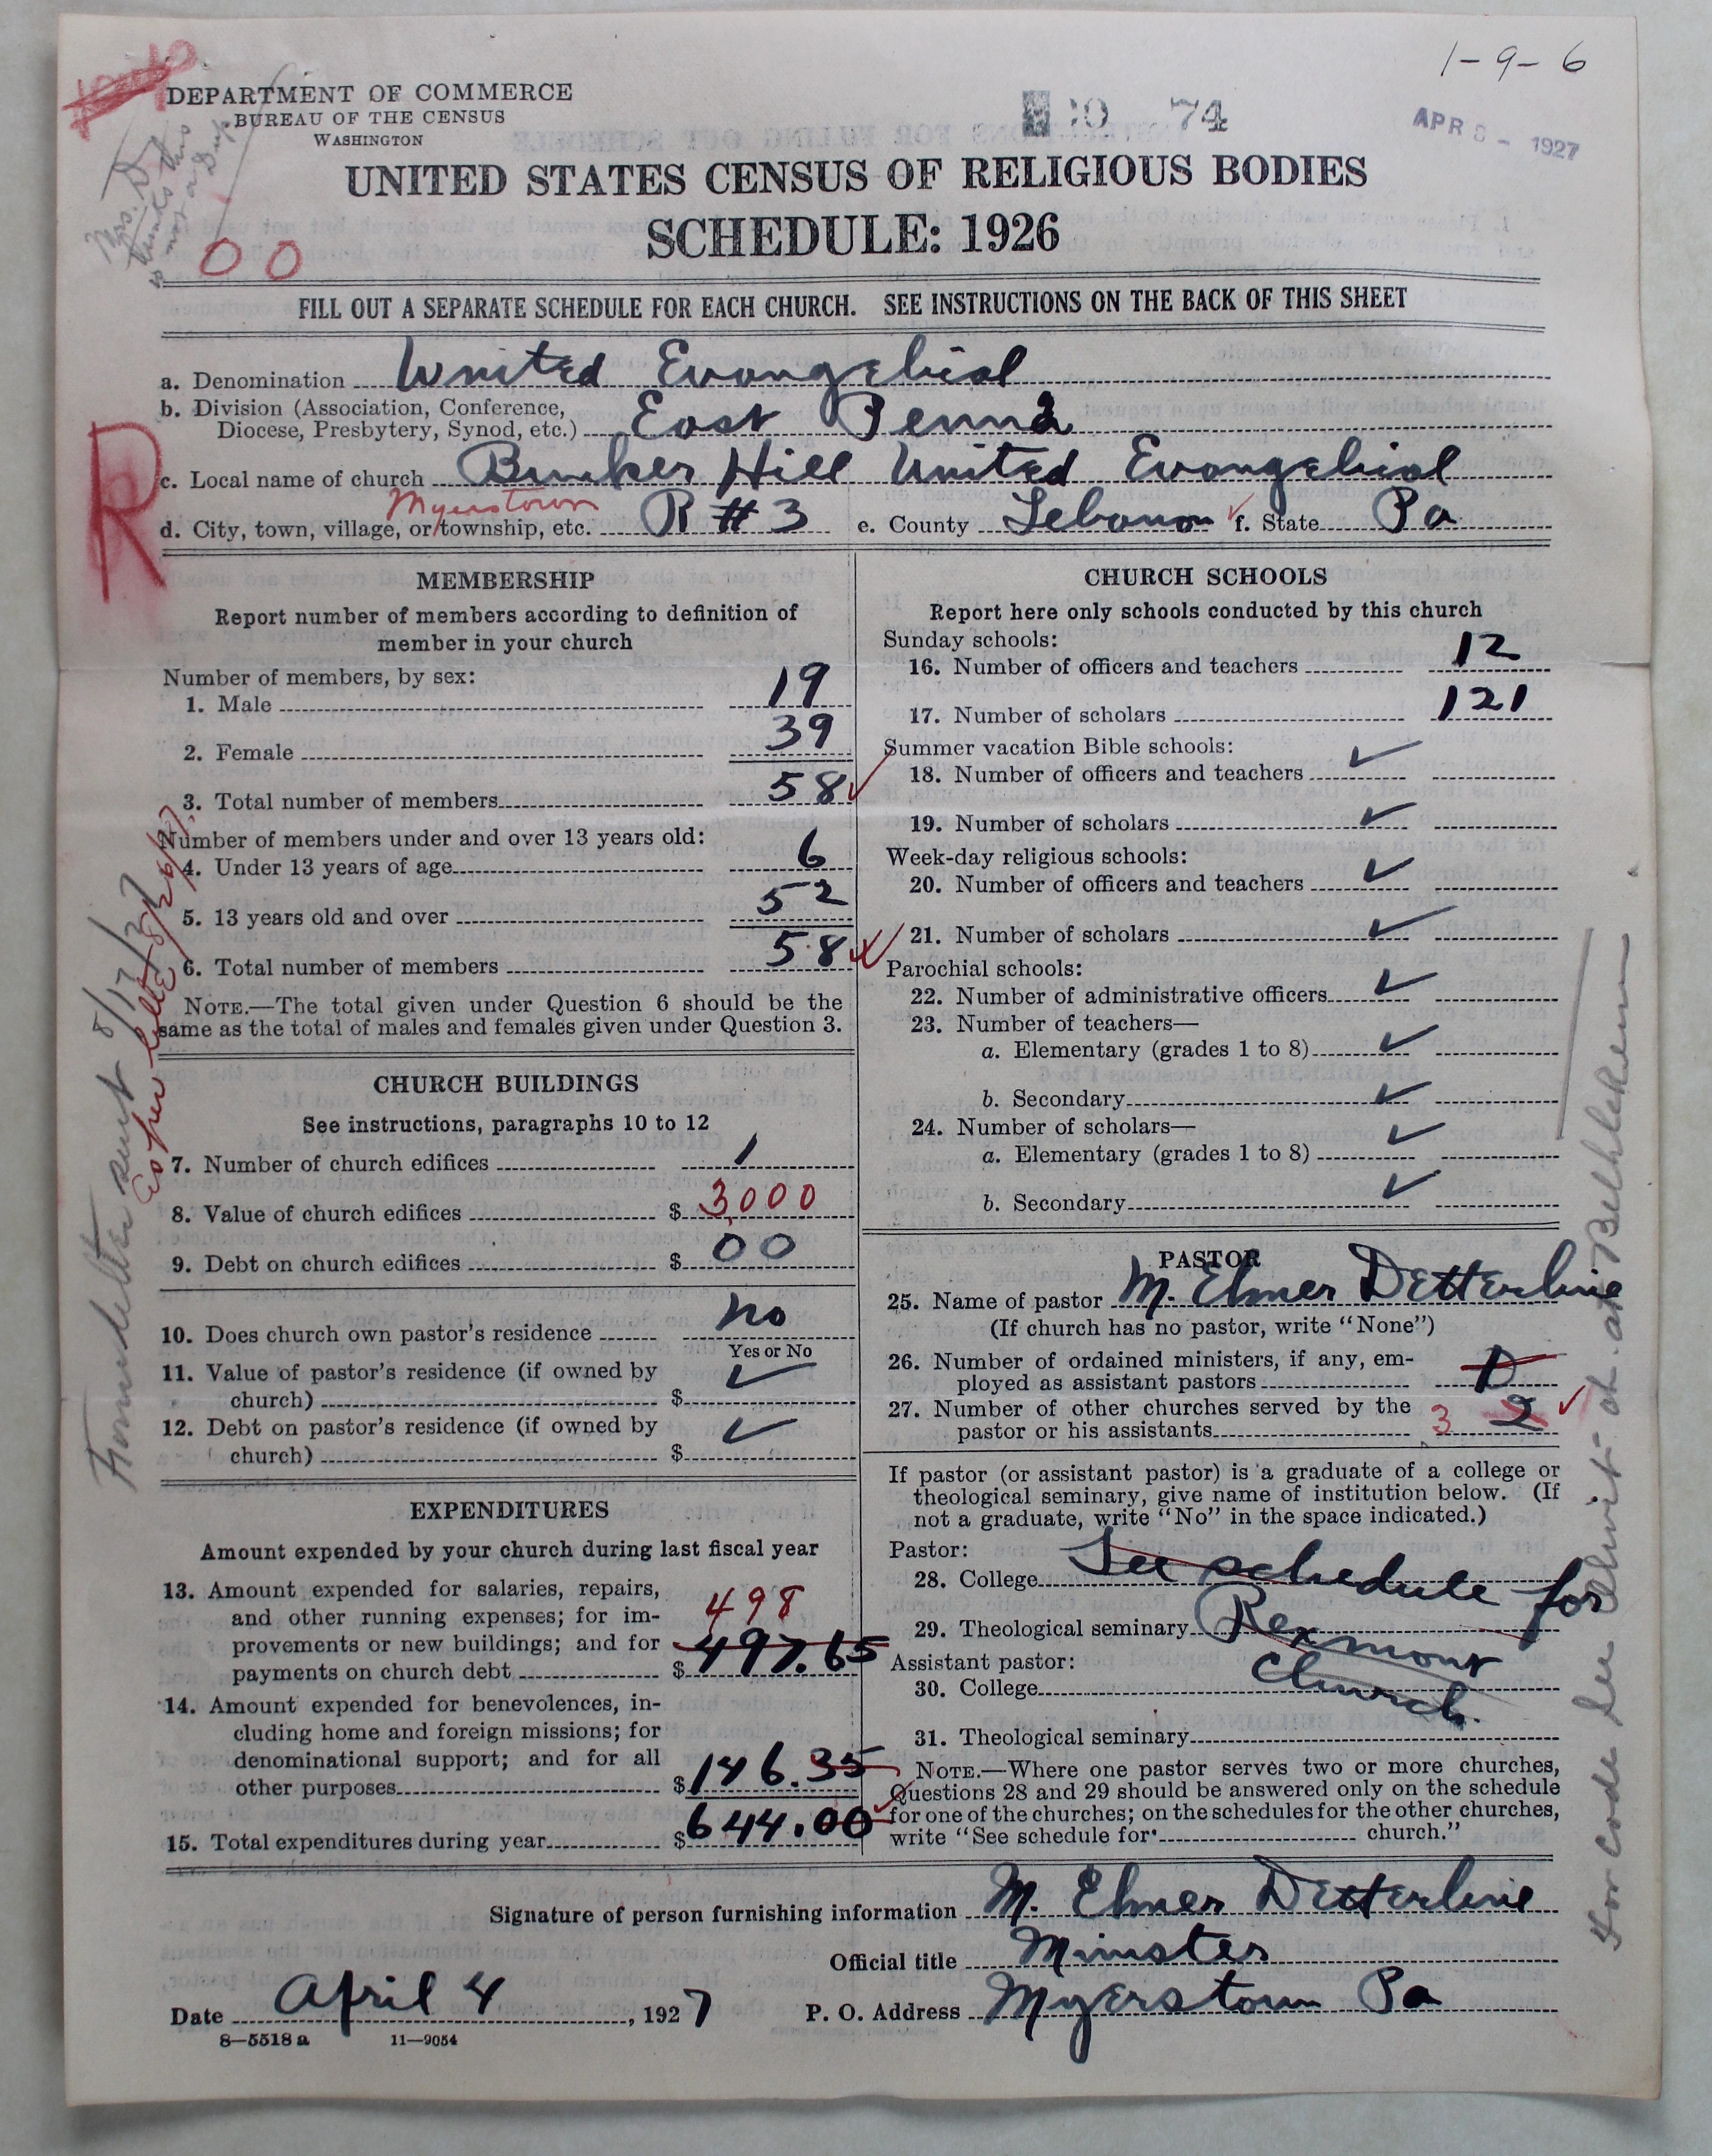 1-9-6
DEPARTMENT OF COMMERCE
BUREAU OF THE CENSUS
WASHINGTON
74
APR 8 - 1927
UNITED STATES CENSUS OF RELIGIOUS BODIES
SCHEDULE: 1926
Mrs. D
thinks this
is not a Dup
00
FILL OUT A SEPARATE SCHEDULE FOR EACH CHURCH. SEE INSTRUCTIONS ON THE BACK OF THIS SHEET
a. Denomination United Evangelical
b. Division (Association, Conference,
Diocese, Presbytery, Synod, etc.) East Penna
R
c. Local name of church Bunker Hill United Evangelical
Myerstown
d. City, town, village, or township, etc. R #3 e. County Lebanon f. State Pa
MEMBERSHIP
Report number of members according to definition of
member in your church
Number of members, by sex:
1. Male 19
2. Female 39
3. Total number of members 58 ✓
Number of members under and over 13 years old:
4. Under 13 years of age 6
5. 13 years old and over 52
6. Total number of members 58 ✓
NOTE.—The total given under Question 6 should be the
same as the total of males and females given under Question 3.
CHURCH BUILDINGS
See instructions, paragraphs 10 to 12
7. Number of church edifices 1
8. Value of church edifices $ 3,000
9. Debt on church edifices $ 00
10. Does church own pastor's residence no
Yes or No
11. Value of pastor's residence (if owned by
church) $ ✓
12. Debt on pastor's residence (if owned by
church) $ ✓
EXPENDITURES
Amount expended by your church during last fiscal year
13. Amount expended for salaries, repairs,
and other running expenses; for im-
provements or new buildings; and for
payments on church debt $ 497.65
498
14. Amount expended for benevolences, in-
cluding home and foreign missions; for
denominational support; and for all
other purposes $ 146.35
15. Total expenditures during year $ 644.00 ✓
CHURCH SCHOOLS
Report here only schools conducted by this church
Sunday schools:
16. Number of officers and teachers 12
17. Number of scholars 121
Summer vacation Bible schools:
18. Number of officers and teachers ✓
19. Number of scholars ✓
Week-day religious schools:
20. Number of officers and teachers ✓
21. Number of scholars ✓
Parochial schools:
22. Number of administrative officers ✓
23. Number of teachers—
a. Elementary (grades 1 to 8) ✓
b. Secondary ✓
24. Number of scholars—
a. Elementary (grades 1 to 8) ✓
b. Secondary ✓
PASTOR
25. Name of pastor M. Elmer Detterline
(If church has no pastor, write "None")
26. Number of ordained ministers, if any, em-
ployed as assistant pastors
27. Number of other churches served by the
pastor or his assistants 3 2 ✓
If pastor (or assistant pastor) is a graduate of a college or
theological seminary, give name of institution below. (If
not a graduate, write "No" in the space indicated.)
Pastor:
28. College See schedule for
29. Theological seminary Rexmont
Assistant pastor: Church.
30. College
31. Theological seminary
NOTE.—Where one pastor serves two or more churches,
Questions 28 and 29 should be answered only on the schedule
for one of the churches; on the schedules for the other churches,
write "See schedule for church."
Signature of person furnishing information M. Elmer Detterline
Official title Minister
Date April 4, 1927 P. O. Address Myerstown Pa
8—5518 a 11—9054
Form letter sent 8/17/27
as per letter 8/26/27
For Code See ch. at Bethlehem.